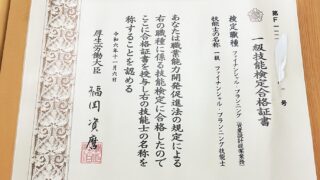 第F一
号
一級技能検定合格証書
検定職種 ファイナンシャル・プランニング 資産設計提案業務
技能士の名称 一級 ファイナンシャル・プランニング技能士
あなたは職業能力開発促進法の規定による
右の職種に係る技能検定に合格したので
ここに合格証書を授与し右の技能士の名称を
称することを認める
令和六年十一月六日
厚生労働大臣 福岡資麿